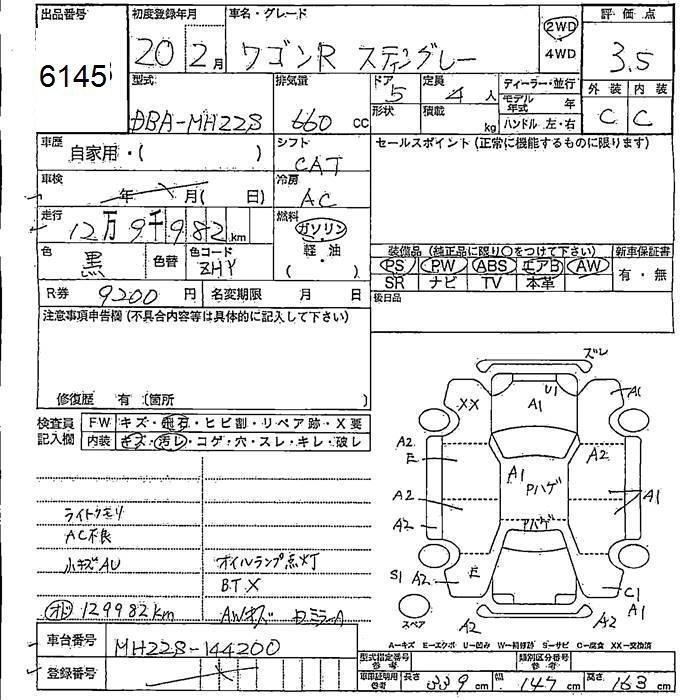 出品番号 6145
初度登録年月 20 2月
車名・グレード ワゴンR スティングレー
2WD 4WD
評価点 3.5
型式 DBA-MH22S
排気量 660 cc
ドア 5 形状
定員 4 人 積載 kg
ディーラー・並行
モデル年式 年
ハンドル 左・右
外装 内装
C C
車歴 自家用・( )
シフト CAT
セールスポイント (正常に機能するものに限ります)
車検 年 月( 日)
冷房 AC
走行 12万9千982 km
燃料 ガソリン・軽・油 ( )
色 黒 色替 色コード ZHY
装備品 (純正品に限り〇をつけて下さい) 新車保証書
PS PW ABS エアB AW
SR ナビ TV 本革
有・無
R券 9200 円 名変期限 月 日
後日品
注意事項申告欄 (不具合内容等は具体的に記入して下さい)
修復歴 有 (箇所 )
検査員記入欄
FW キズ・飛石・ヒビ割・リペア跡・X要
内装 キズ・汚レ・コゲ・穴・スレ・キレ・破レ
ライトクモリ
AC不良
小キズAU オイルランプ点灯
BTX
オド 129982km AWキズ
車台番号 MH22S-144200
登録番号
ズレ
XX A1 U1 A1
A2 E A2
A1 Pハゲ
A2 A1
A2 Pハゲ
S1 A2 E C1
A1
スペア A2 A2
A-キズ E-エクボ U-凹み W-補修跡 S-サビ C-腐食 XX-交換済
型式指定番号 参考 類別区分番号 参考
車証証明用 参考 長さ 339 cm 幅 147 cm 高さ 163 cm